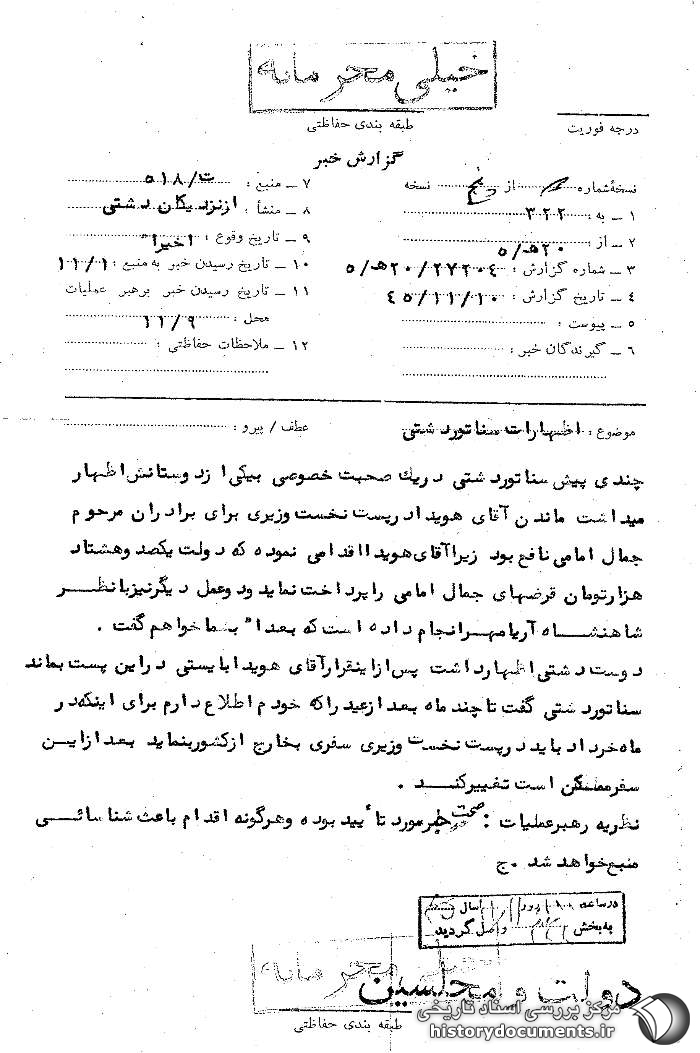 خیلی محرمانه
طبقه بندی حفاظتی
درجه فوریت
گزارش خبر
نسخهٔ شماره از پنج نسخه
۱ ـ به : ۳۲۲
۲ ـ از ۲۰هـ/۵
۳ ـ شماره گزارش : ۲۷۲۰۴/۲۰هـ/۵
۴ ـ تاریخ گزارش : ۴۵/۱۱/۱۰
۵ ـ پیوست :
۶ ـ گیرندگان خبر :
۷ ـ منبع : ت/۵۱۸
۸ ـ منشأ : ازنزدیکان دشتی
۹ ـ تاریخ وقوع : اخیرا"
۱۰ ـ تاریخ رسیدن خبر به منبع : ۱۱/۱
۱۱ ـ تاریخ رسیدن خبر برهبر عملیات
محل : ۱۱/۹
۱۲ ـ ملاحظات حفاظتی :
موضوع : اظهارات سناتوردشتی
عطف / پیرو :
چندی پیش سناتوردشتی دریك صحبت خصوصی بیكی ازدوستانش اظهار
میداشت ماندن آقای هویدا درپست نخست وزیری برای برادران مرحوم
جمال امامی نافع بود زیرا آقای هویدا اقدامی نموده که دولت یکصد وهشتاد
هزارتومان قرضهای جمال امامی را پرداخت نماید ودوعمل دیگرنیزبانظر
شاهنشاه آریامهرانجام داده است که بعدا" بشما خواهم گفت .
دوست دشتی اظهارداشت پس ازاینقرارآقای هویدا بایستی دراین پست بماند
سناتوردشتی گفت تا چند ماه بعد ازعید را که خودم اطلاع دارم برای اینکه در
ماه خرداد باید درپست نخست وزیری سفری بخارج ازکشوربنماید بعد ازاین
سفرممکن است تغییرکند .
نظریه رهبرعملیات : صحت خبرمورد تأیید بوده وهرگونه اقدام باعث شناسائی
منبع خواهد شد .ج
درساعه ۱۰ روز سال
به بخش ۳۲۱ واصل گردید
خیلی محرمانه
دولت و مجلسین
طبقه بندی حفاظتی
مرکز بررسی اسناد تاریخی
historydocuments.ir